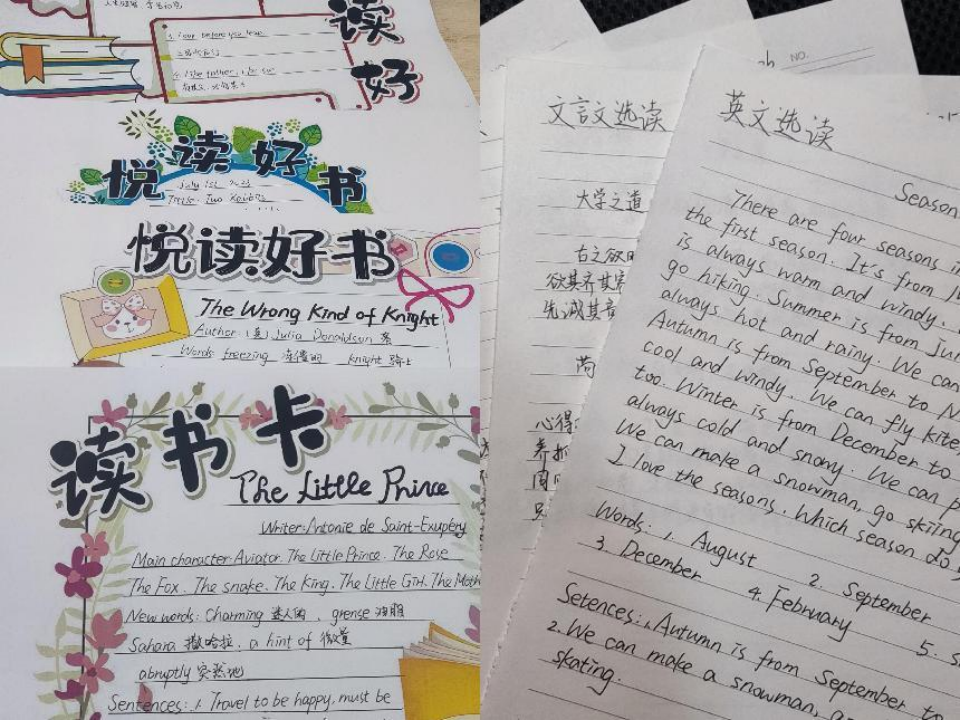 读
好
3. Look before you leap
4. Like father, like son
悦读好书
July 1st
Title: Two Rabbits
悦读好书
The Wrong Kind of Knight
Author: (英) Julia Donaldson 著
Words freezing knight 骑士
读书卡
The Little Prince
Writer: Antonie de Saint-Exupéry
Main character: Aviator. The Little Prince. The Rose
The Fox. The snake. The King. The Little Girl. The Moth
New words: Charming 迷人的, grense 油脂
Sahara 撒哈拉, a hint of 微量
abruptly 突然地
Sentences: 1. Travel to be happy, must be
文言文选读
大学之道
古之欲明
欲其齐其家
先诚其意
心得:
NO.
英文选读
Season
There are four seasons in
the first season. It's from
is always warm and windy.
go hiking. Summer is from Jun
always hot and rainy. We can
Autumn is from September to N
cool and windy. We can fly kites
too. Winter is from December to
always cold and snowy. We can p
We can make a snowman, go skiing
I love the seasons. Which season do y
Words: 1. August 2. September
3. December 4. February 5. s
Setences: 1. Autumn is from September to
2. We can make a snowman,
skating.